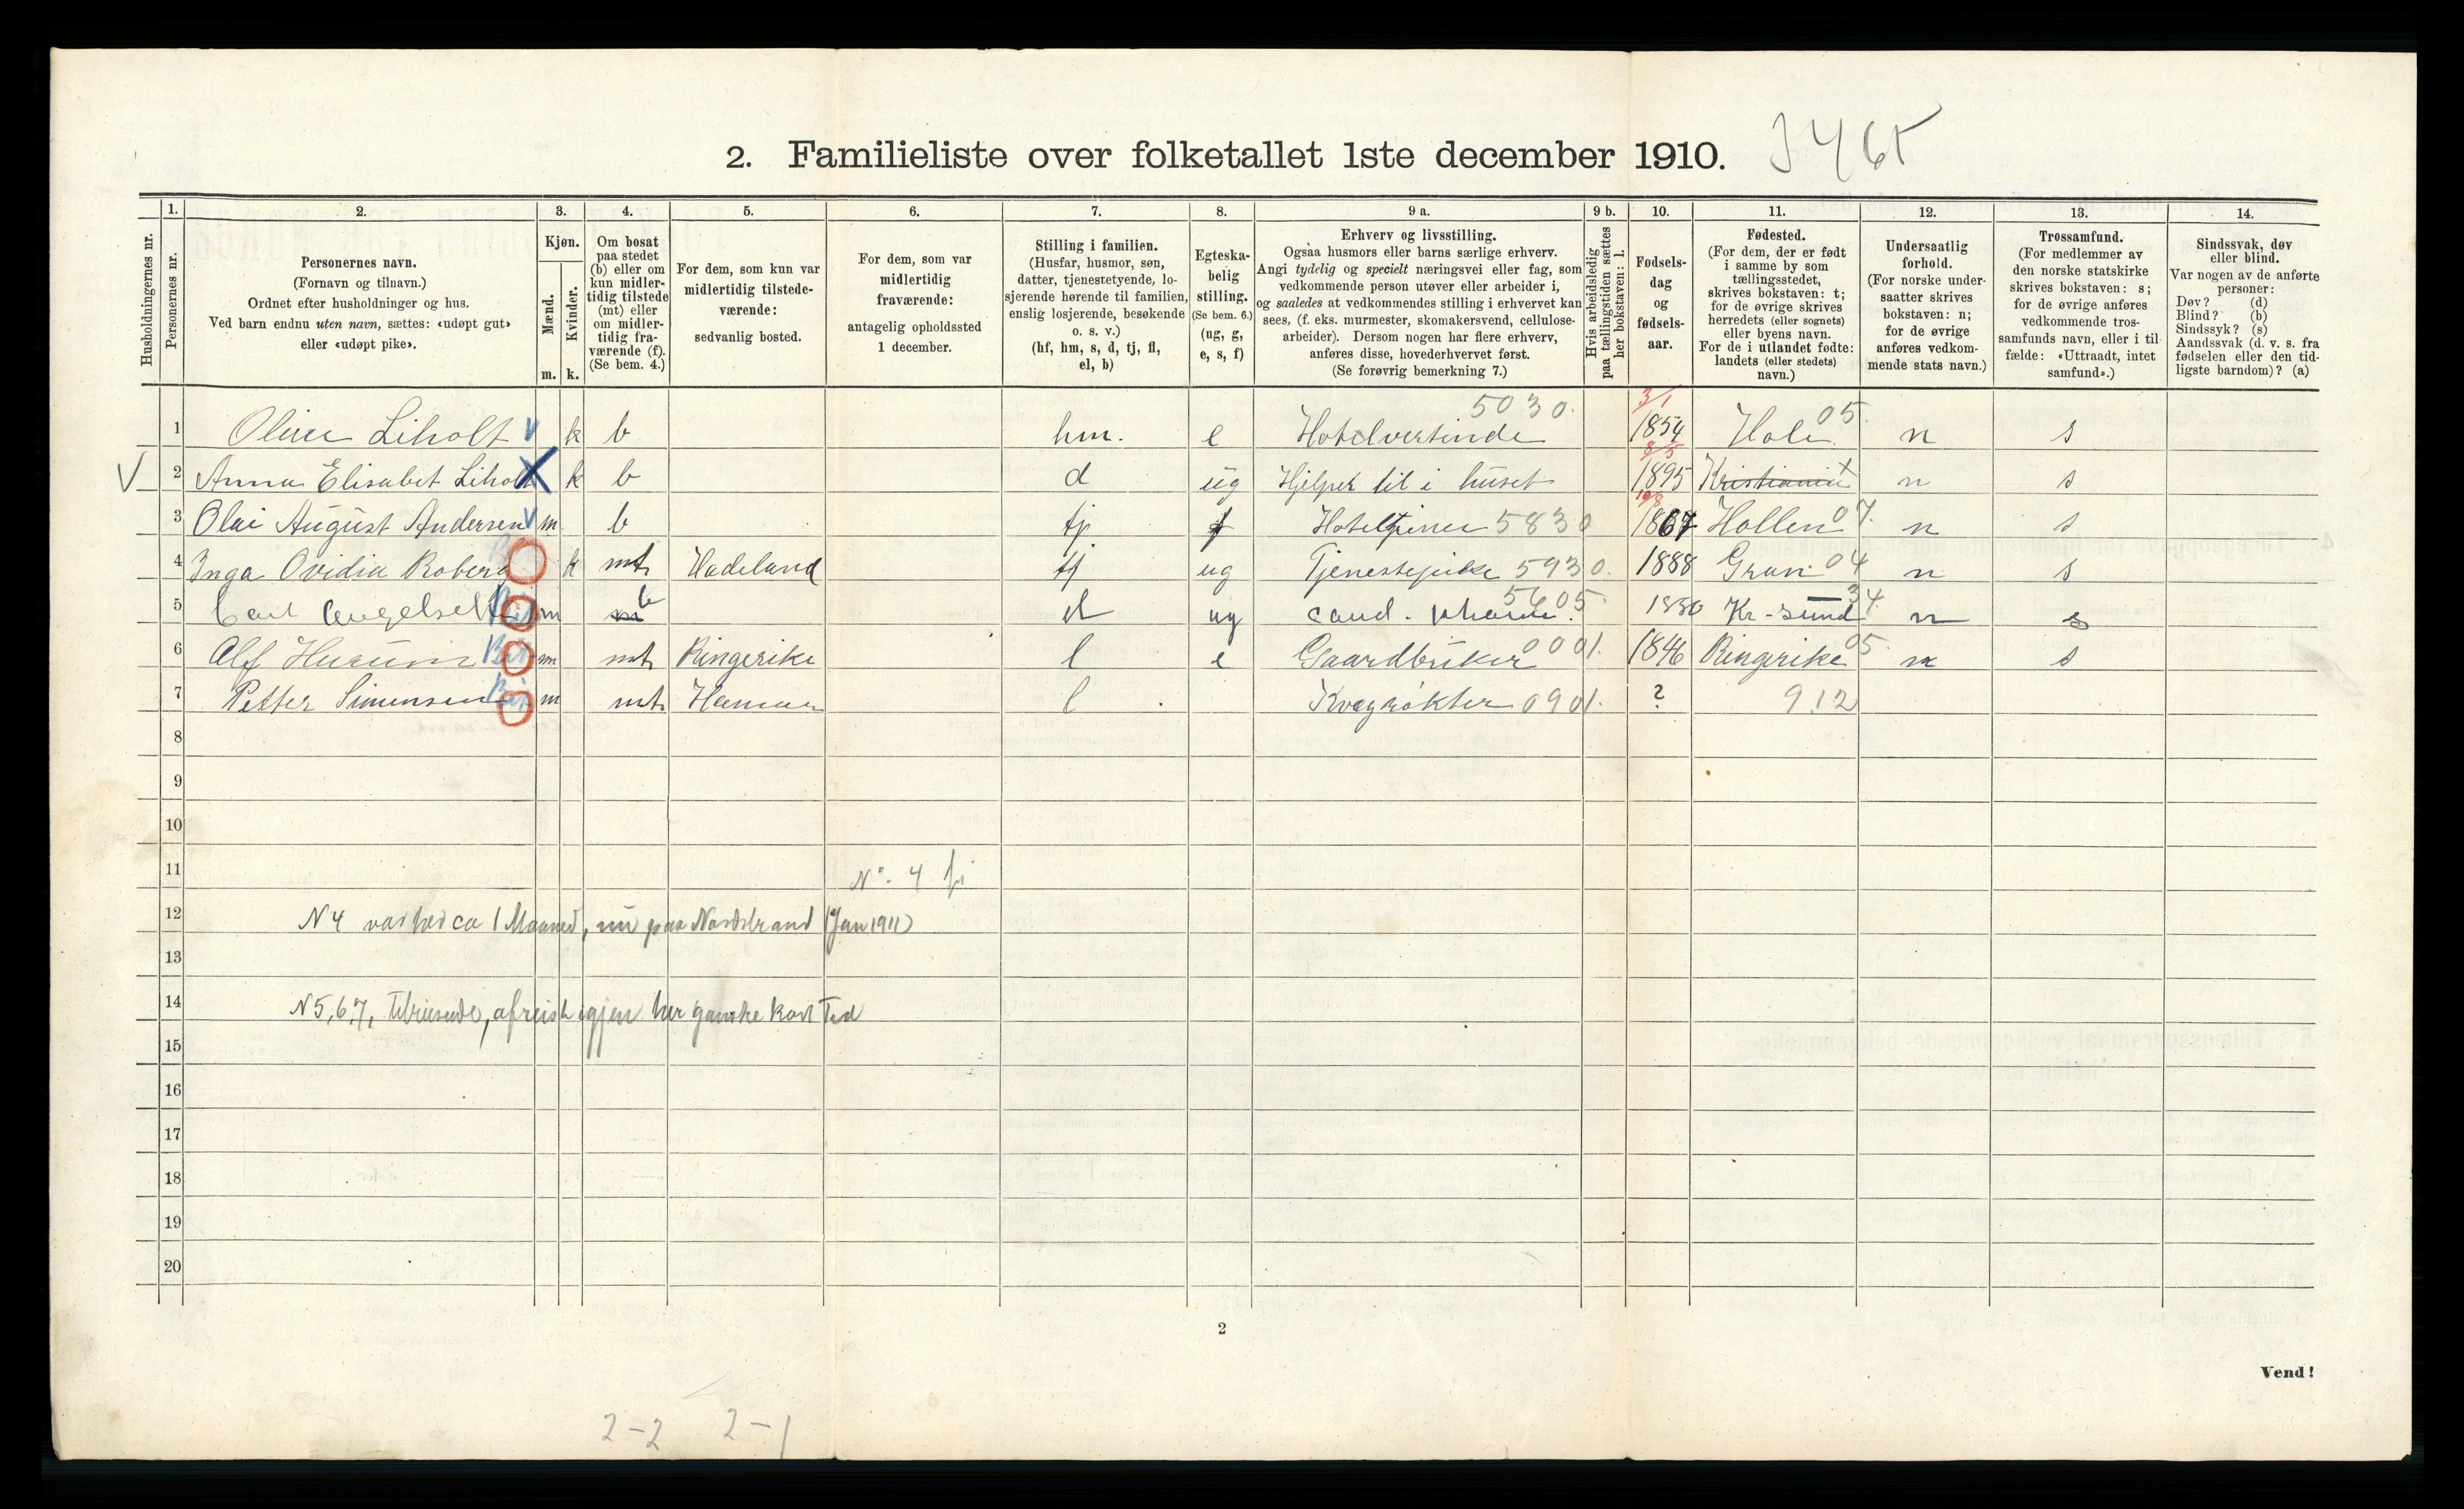 2. Familieliste over folketallet 1ste december 1910. 3465
Husholdningernes nr.
1. Personernes nr.
2. Personernes navn.
(Fornavn og tilnavn.)
Ordnet efter husholdninger og hus.
Ved barn endnu uten navn, sættes: «udøpt gut»
eller «udøpt pike».
3. Kjøn.
Mænd. Kvinder.
m. k.
4. Om bosat
paa stedet
(b) eller om
kun midler-
tidig tilstede
(mt) eller
om midler-
tidig fra-
værende (f).
(Se bem. 4.)
5. For dem, som kun var
midlertidig tilstede-
værende:
sedvanlig bosted.
6. For dem, som var
midlertidig
fraværende:
antagelig opholdssted
1 december.
7. Stilling i familien.
(Husfar, husmor, søn,
datter, tjenestetyende, lo-
sjerende hørende til familien,
enslig losjerende, besøkende
o. s. v.)
(hf, hm, s, d, tj, fl,
el, b)
8. Egteska-
belig
stilling.
(Se bem. 6.)
(ug, g,
e, s, f)
9 a. Erhverv og livsstilling.
Ogsaa husmors eller barns særlige erhverv.
Angi tydelig og specielt næringsvei eller fag, som
vedkommende person utøver eller arbeider i,
og saaledes at vedkommendes stilling i erhvervet kan
sees, (f. eks. murmester, skomakersvend, cellulose-
arbeider). Dersom nogen har flere erhverv,
anføres disse, hovederhvervet først.
(Se forøvrig bemerkning 7.)
9 b. Hvis arbeidsledig
paa tællingstiden sættes
her bokstaven: l.
10. Fødsels-
dag
og
fødsels-
aar.
11. Fødested.
(For dem, der er født
i samme by som
tællingsstedet,
skrives bokstaven: t;
for de øvrige skrives
herredets (eller sognets)
eller byens navn.
For de i utlandet fødte:
landets (eller stedets)
navn.)
12. Undersaatlig
forhold.
(For norske under-
saatter skrives
bokstaven: n;
for de øvrige
anføres vedkom-
mende stats navn.)
13. Trossamfund.
(For medlemmer av
den norske statskirke
skrives bokstaven: s;
for de øvrige anføres
vedkommende tros-
samfunds navn, eller i til-
fælde: «Uttraadt, intet
samfund».)
14. Sindssvak, døv
eller blind.
Var nogen av de anførte
personer:
Døv? (d)
Blind? (b)
Sindssyk? (s)
Aandssvak (d. v. s. fra
fødselen eller den tid-
ligste barndom)? (a)
1 Oline Liholt k b hm. e Hotelvertinde 5030. 3/1 1854 Hole 05. n s
2 Anna Elisabet Liholt k b d ug Hjelper til i huset 8/5 1895 Kristiania t n s
3 Olai August Andersen m b tj f Hoteltjener 5830 10/8 1867 Hollen 07. n s
4 Inga Ovidia Roberg k mt Hadeland tj ug Tjenestepike 5930. 1888 Gran 04 n s
5 Carl m b ug cand. pharm. 5605. 1880 Kr-sund 34. n s
6 Alf Hurum m mt Ringerike l e Gaardbruker 0001. 1846 Ringerike 05. n s
7 Petter Simensen m mt Hamar l Kvægrøkter 0901. ? 912
8
9
10
11 No. 4
12 N 4 var her ca 1 Maaned, nu paa Nordstrand (Jan 1911)
13
14 N 5, 6, 7, tilreisende, afreist igjen her ganske kort Tid
15
16
17
18
19
20
2
Vend!
2-2 2-1